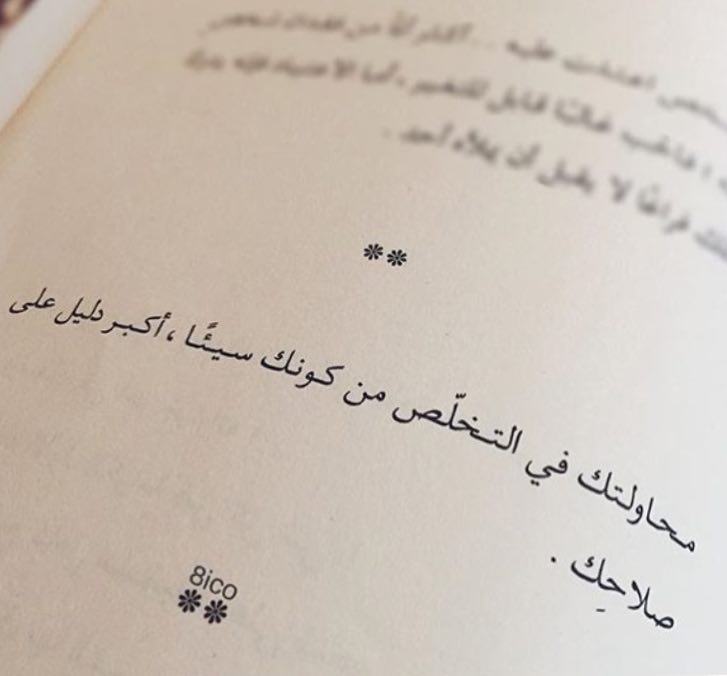 اعتادت عليه ... أكثر ألمًا من فقدان شخص
غالبًا قابل للتغيير ، أما الاعتياد فإنه يترك
فراغًا لا يقبل أن يملأه أحد .
**
محاولتك في التخلّص من كونك سيئًا ، أكبر دليل على
صلاحِك .
8ico
**